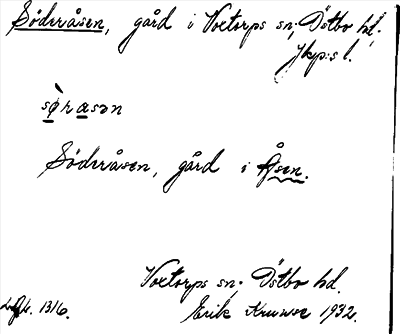 Söderåsen, gård i Voxtorps sn; Östbo hd;
Jkp:s l.
sø̀rasən
Söderåsen, gård i Åsen.
Voxtorps sn; Östbo hd.
1316. Erik Kruuse 1932.